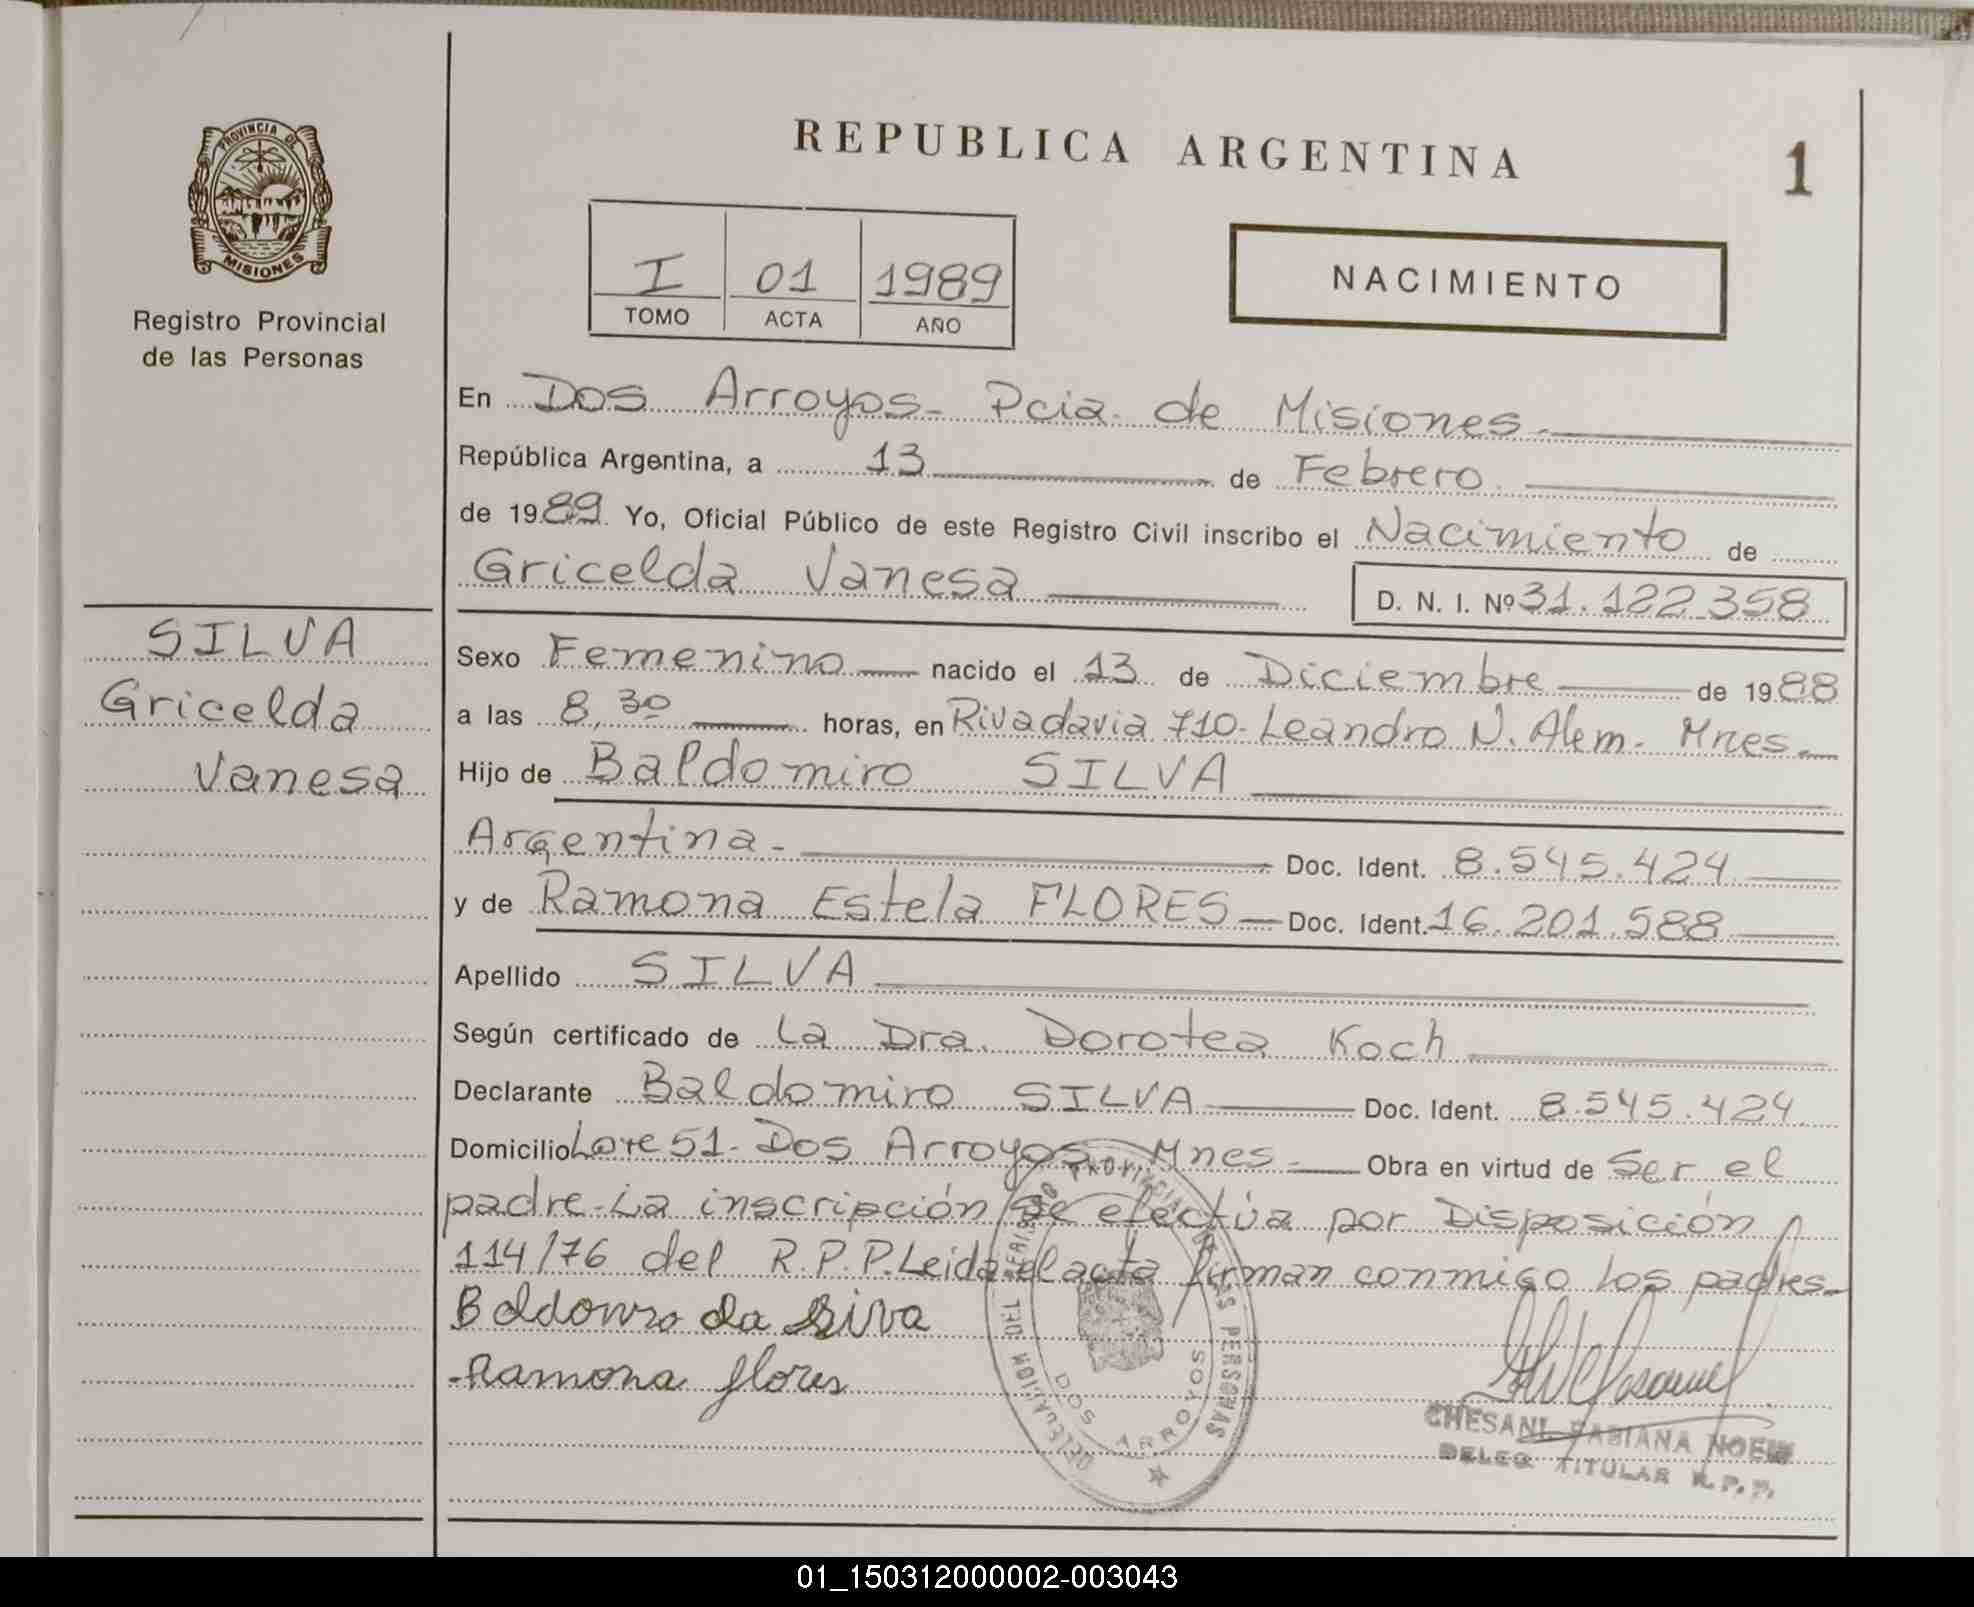 PROVINCIA DE
MISIONES
Registro Provincial
de las Personas
SILVA
Gricelda
Vanesa
REPUBLICA ARGENTINA
1
I 01 1989
TOMO ACTA AÑO
NACIMIENTO
En Dos Arroyos- Pcia. de Misiones.
República Argentina, a 13 de Febrero.
de 1989. Yo, Oficial Público de este Registro Civil inscribo el Nacimiento de
Gricelda Vanesa D. N. I. Nº 31.122.358
Sexo Femenino nacido el 13 de Diciembre de 1988
a las 8,30 horas, en Rivadavia 710- Leandro N. Alem- Mnes.
Hijo de Baldomiro SILVA
Argentina- Doc. Ident. 8.545.424
y de Ramona Estela FLORES Doc. Ident. 16.201.588
Apellido SILVA
Según certificado de La Dra. Dorotea Koch
Declarante Baldomiro SILVA Doc. Ident. 8.545.424.
Domicilio Lote 51- Dos Arroyos Mnes- Obra en virtud de Ser el
padre-La inscripción se efectúa por Disposición
114/76 del R.P.P. Leida el acta firman conmigo los padres-
da silva
Ramona flores
PROVINCIAL DE LAS PERSONAS
DOS ARROYOS
CHESANI, FABIANA NOEMI
DELEG TITULAR R.P.P.
01_150312000002-003043